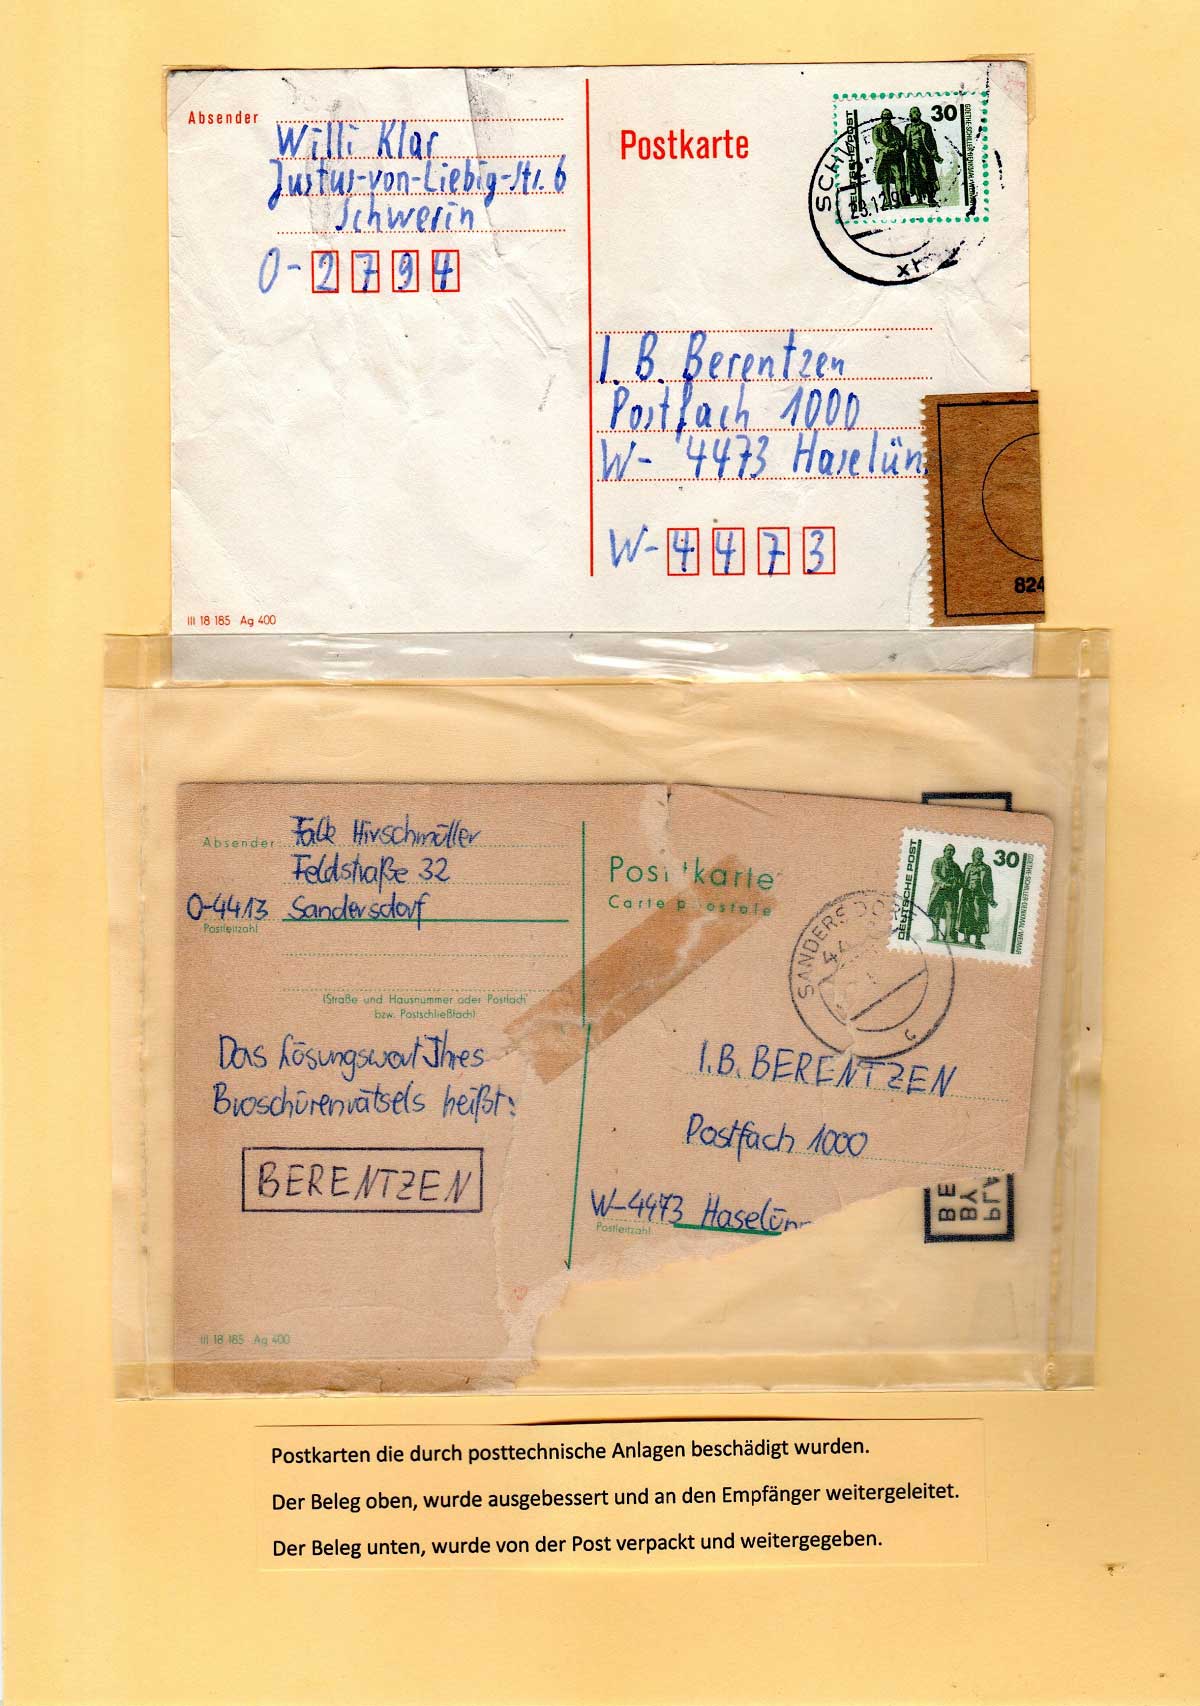 Absender
Willi Klar
Justus-von-Liebig-Str. 6
Schwerin
O- 2 7 9 4
Postkarte
30
DEUTSCHE POST
GOETHE-SCHILLER-DENKMAL/WEIMAR
23.12.9
I. B. Berentzen
Postfach 1000
W- 4473 Haselün
W- 4 4 7 3
824
III 18 185 Ag 400
Absender Falk Hirschmüller
Feldstraße 32
O-4413 Sandersdorf
Postleitzahl
(Straße und Hausnummer oder Postfach
bzw. Postschließfach)
Das Lösungswort Ihres
Broschürenrätsels heißt:
BERENTZEN
III 18 185 Ag 400
Postkarte
Carte postale
30
DEUTSCHE POST
GOETHE-SCHILLER-DENKMAL/WEIMAR
SANDERSDO
I.B. BERENTZEN
Postfach 1000
W-4473 Haselünn
Postleitzahl
BE
BY
PLA
Postkarten die durch posttechnische Anlagen beschädigt wurden.
Der Beleg oben, wurde ausgebessert und an den Empfänger weitergeleitet.
Der Beleg unten, wurde von der Post verpackt und weitergegeben.